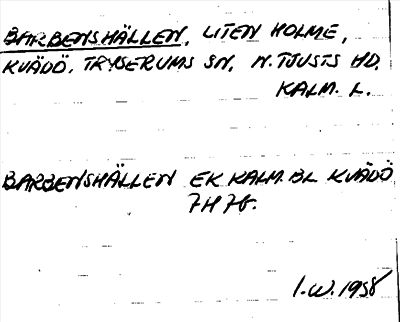 BARBENSHÄLLEN, LITEN HOLME,
KVÄDÖ, TRYSERUMS SN, N. TJUSTS HD.
KALM. L.
BARBENSHÄLLEN EK KALM. BL KVÄDÖ
7H7f.
I.W. 1958